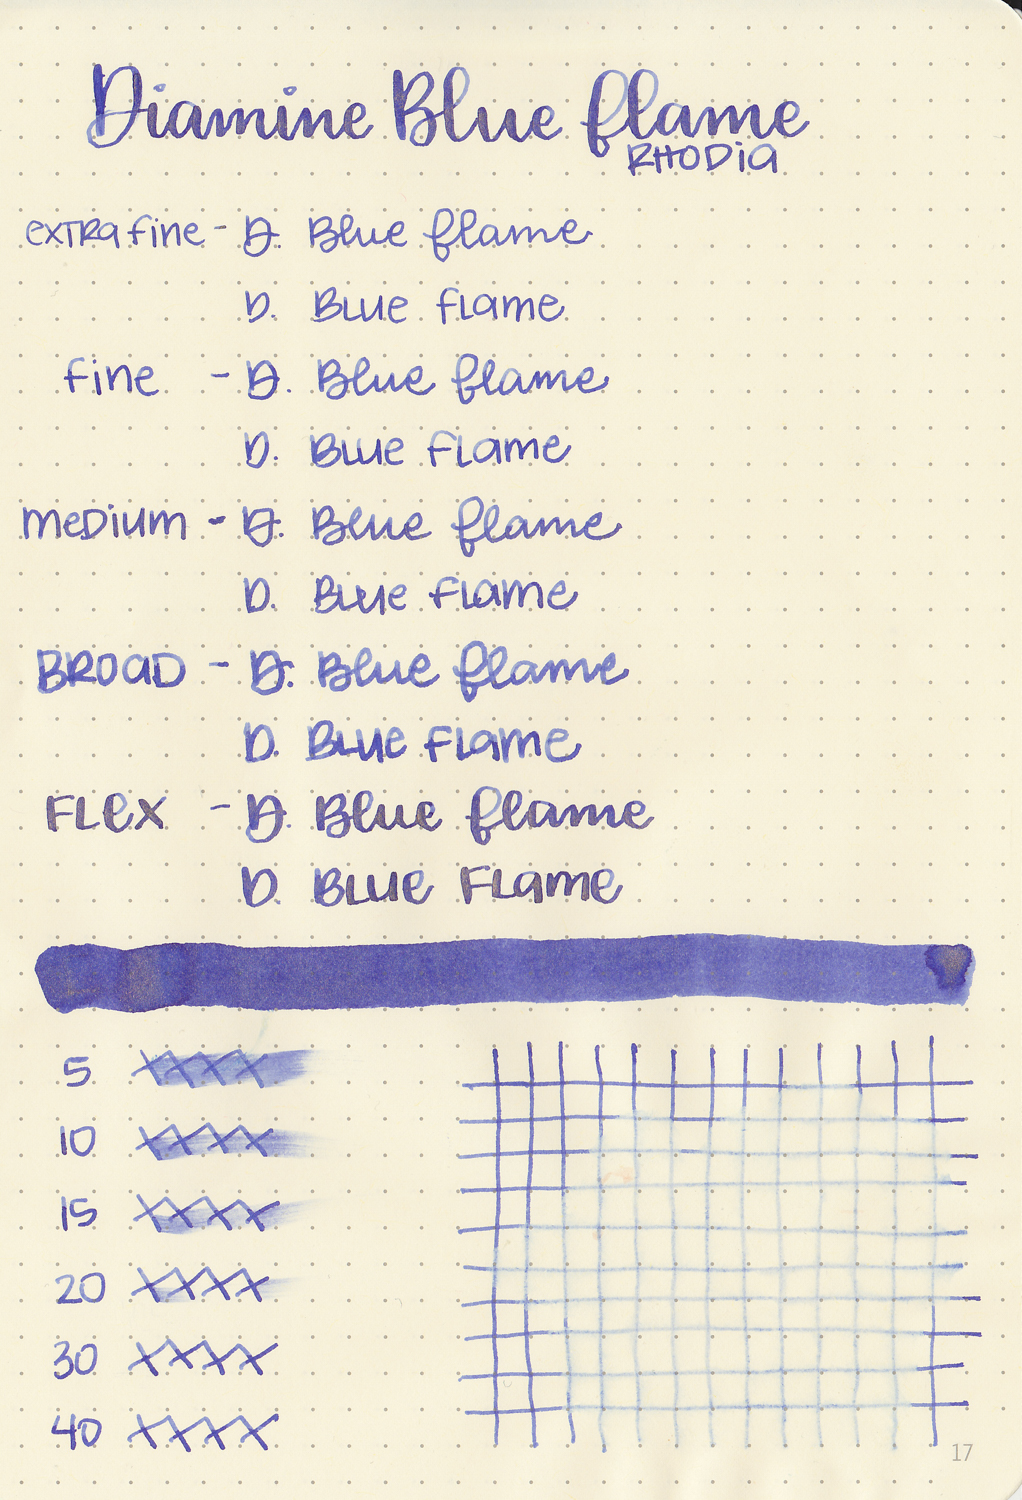 Diamine Blue flame
RHODIA
extra fine - D. Blue flame
D. Blue flame
fine - D. Blue flame
D. Blue flame
MEDIUM - D. Blue flame
D. Blue flame
BROAD - D. Blue flame
D. Blue flame
FLEX - D. Blue flame
D. BLUE FLAME
5 XXXX
10 XXXX
15 XXXX
20 XXXX
30 XXXX
40 XXXX
17